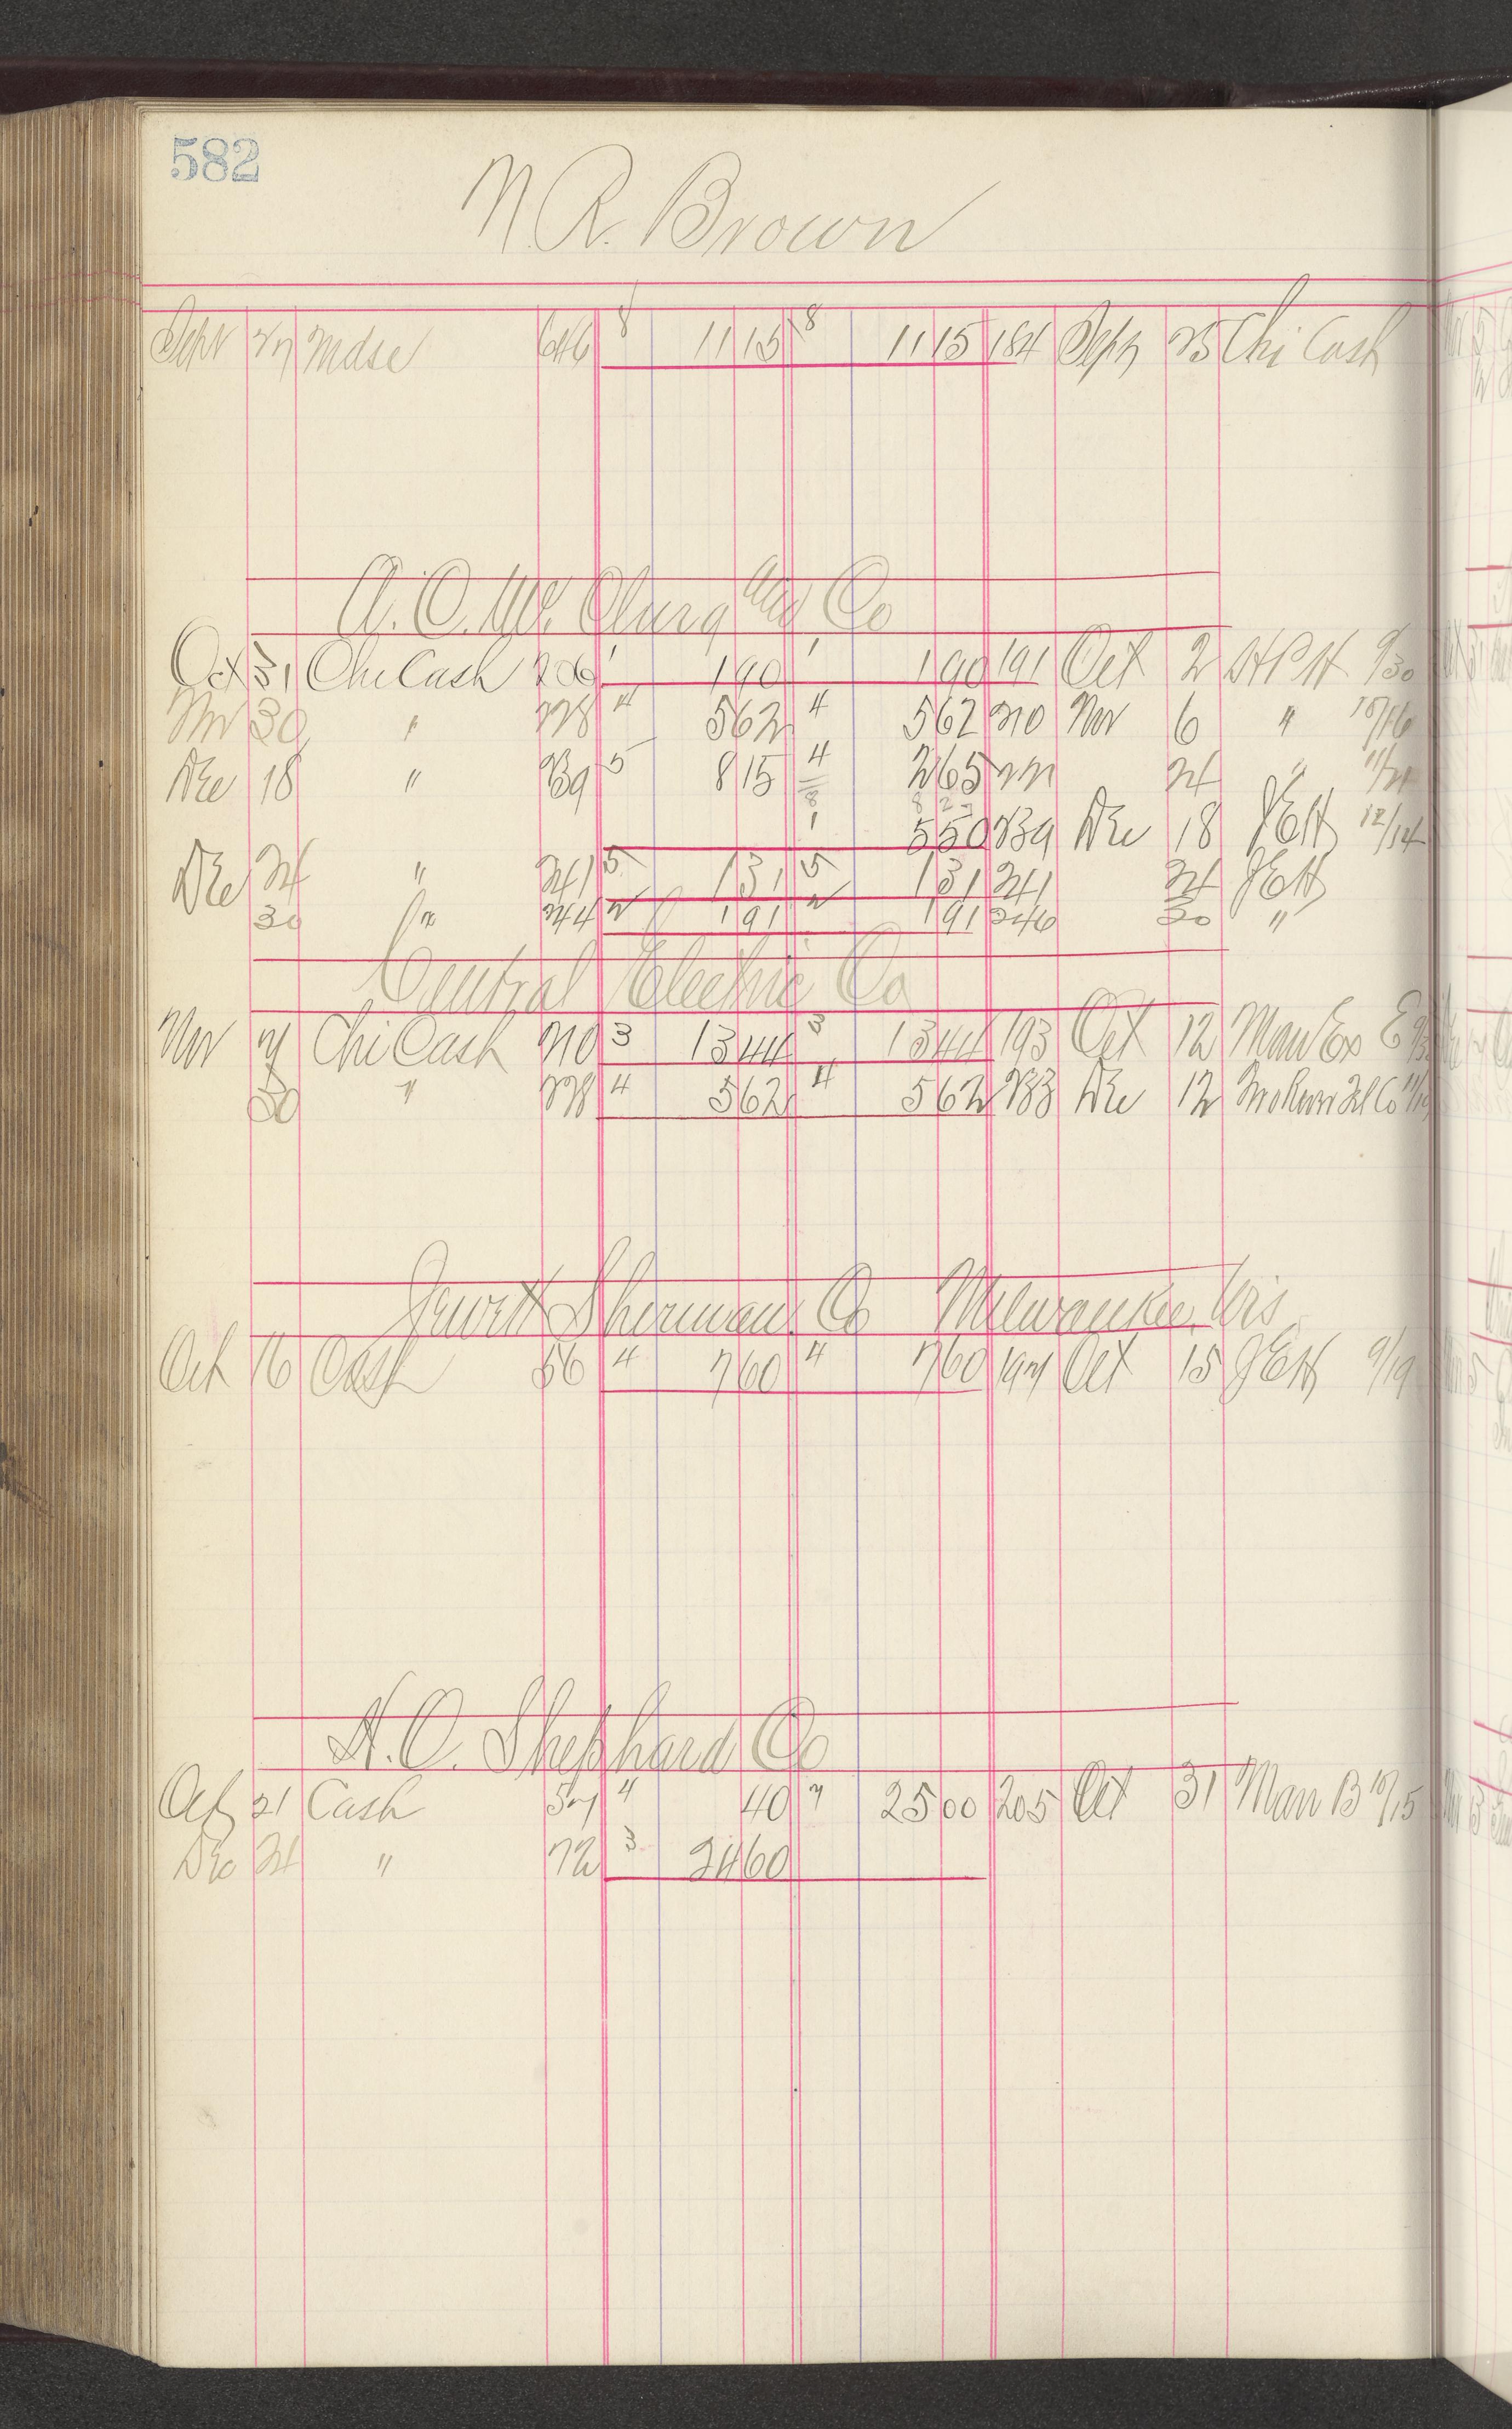 582
N. R. Brown
Sept 27 Mdse 646 8 11 15 8 11 15 184 Sept 25 Chi Cash
A. C. Mc. Clurg and Co
Oct 31 Chi Cash 206 1 1 90 1 1 90 191 Oct 2 9/30
Nov 30 " 228 4 5 62 4 5 62 210 Nov 6 " 10/16
Dec 18 " 239 5 8 15 4 2 65 221 24 " 11/21
8 8 27
1 5 50 239 Dec 18 JEH 12/14
Dec 24 " 241 5 1 31 5 1 31 241 24 JEH
30 " 244 2 1 91 2 1 91 246 30 "
Central Electric Co
Nov 7 Chi Cash 210 3 13 44 3 13 44 193 Oct 12 Man Ex
30 " 228 4 5 62 4 5 62 233 Dec 12
Jewett Sherman Co Milwaukee, Wis
Oct 16 Cash 56 4 7 60 4 7 60 197 Oct 15 JEH 9/19
H. O. Shephard Co
Oct 21 Cash 57 4 40 7 25 00 205 Oct 31 Man B 10/15
Dec 24 " 72 3 24 60